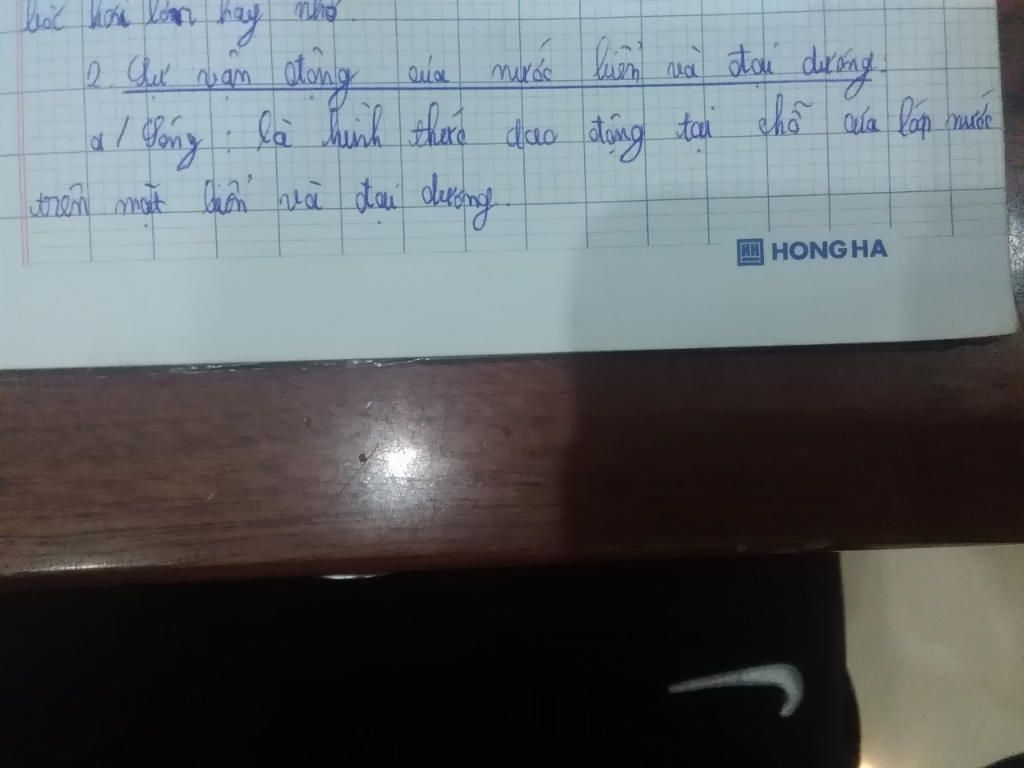 bốc hơi lớn hay nhỏ.
2. Sự vận động của nước biển và đại dương.
a/ Sóng: là hình thức dao động tại chỗ của lớp nước
trên mặt biển và đại dương.
HH HONG HA